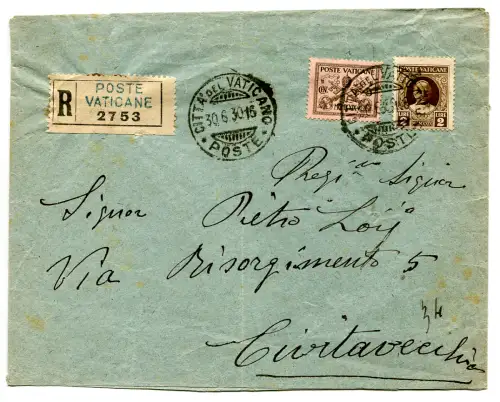 R
POSTE
VATICANE
2753
CITTÀ DEL VATICANO
30.6.30.16
POSTE
POSTE VATICANE
POSTE VATICANE
LIRE 2 LIRE
Signor
Pietro
Via Risorgimento 5
Civitavecchia